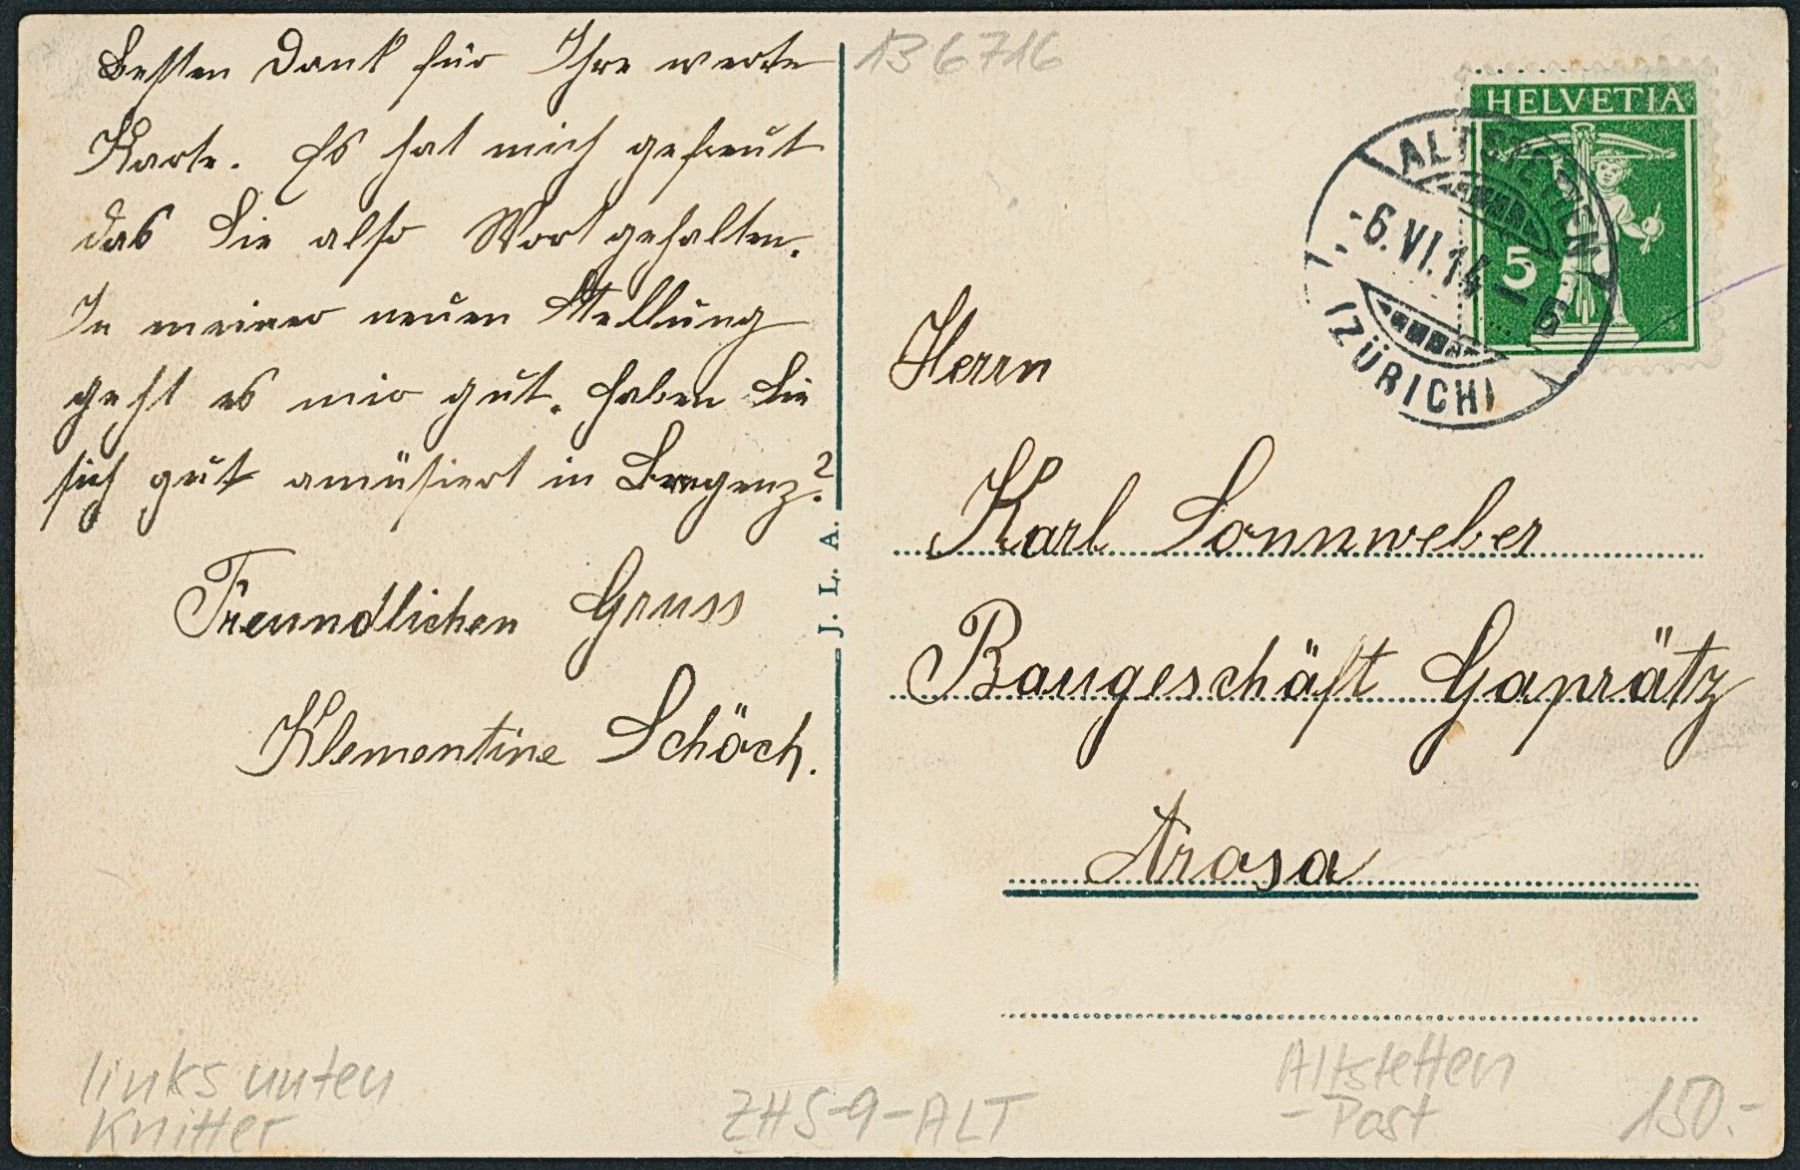 Besten Dank für Ihre werte
Karte. Es hat mich gefreut
das Sie also Wort gehalten.
In meiner neuen Stellung
geht es mir gut. Haben Sie
sich gut amüsiert in Bregenz?
Freundlichen Gruss
Klementine Schöch.
J. L. A.
136716
HELVETIA
5
ALTSTETTEN
-6.VI.14-6
(ZÜRICH)
Herrn
Karl Sonnweber
Baugeschäft Gaprätz
Arosa
links unten
Knitter
ZHS-9-ALT
Altstetten
- Post
150.-